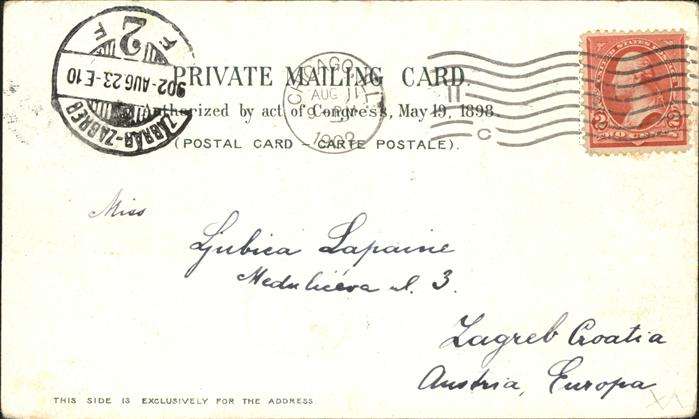 2
F F
902-AUG 23-E-10
ZÁGRÁB-ZAGREB
CHICAGO, ILL.
AUG 11
1902
C
UNITED STATES
2 2
TWO CENTS
PRIVATE MAILING CARD.
Authorized by act of Congress, May 19, 1898.
(POSTAL CARD – CARTE POSTALE).
Miss
Ljubica Lapaine
Medulićeva ul. 3.
Zagreb Croatia
Austria, Europa
THIS SIDE IS EXCLUSIVELY FOR THE ADDRESS.